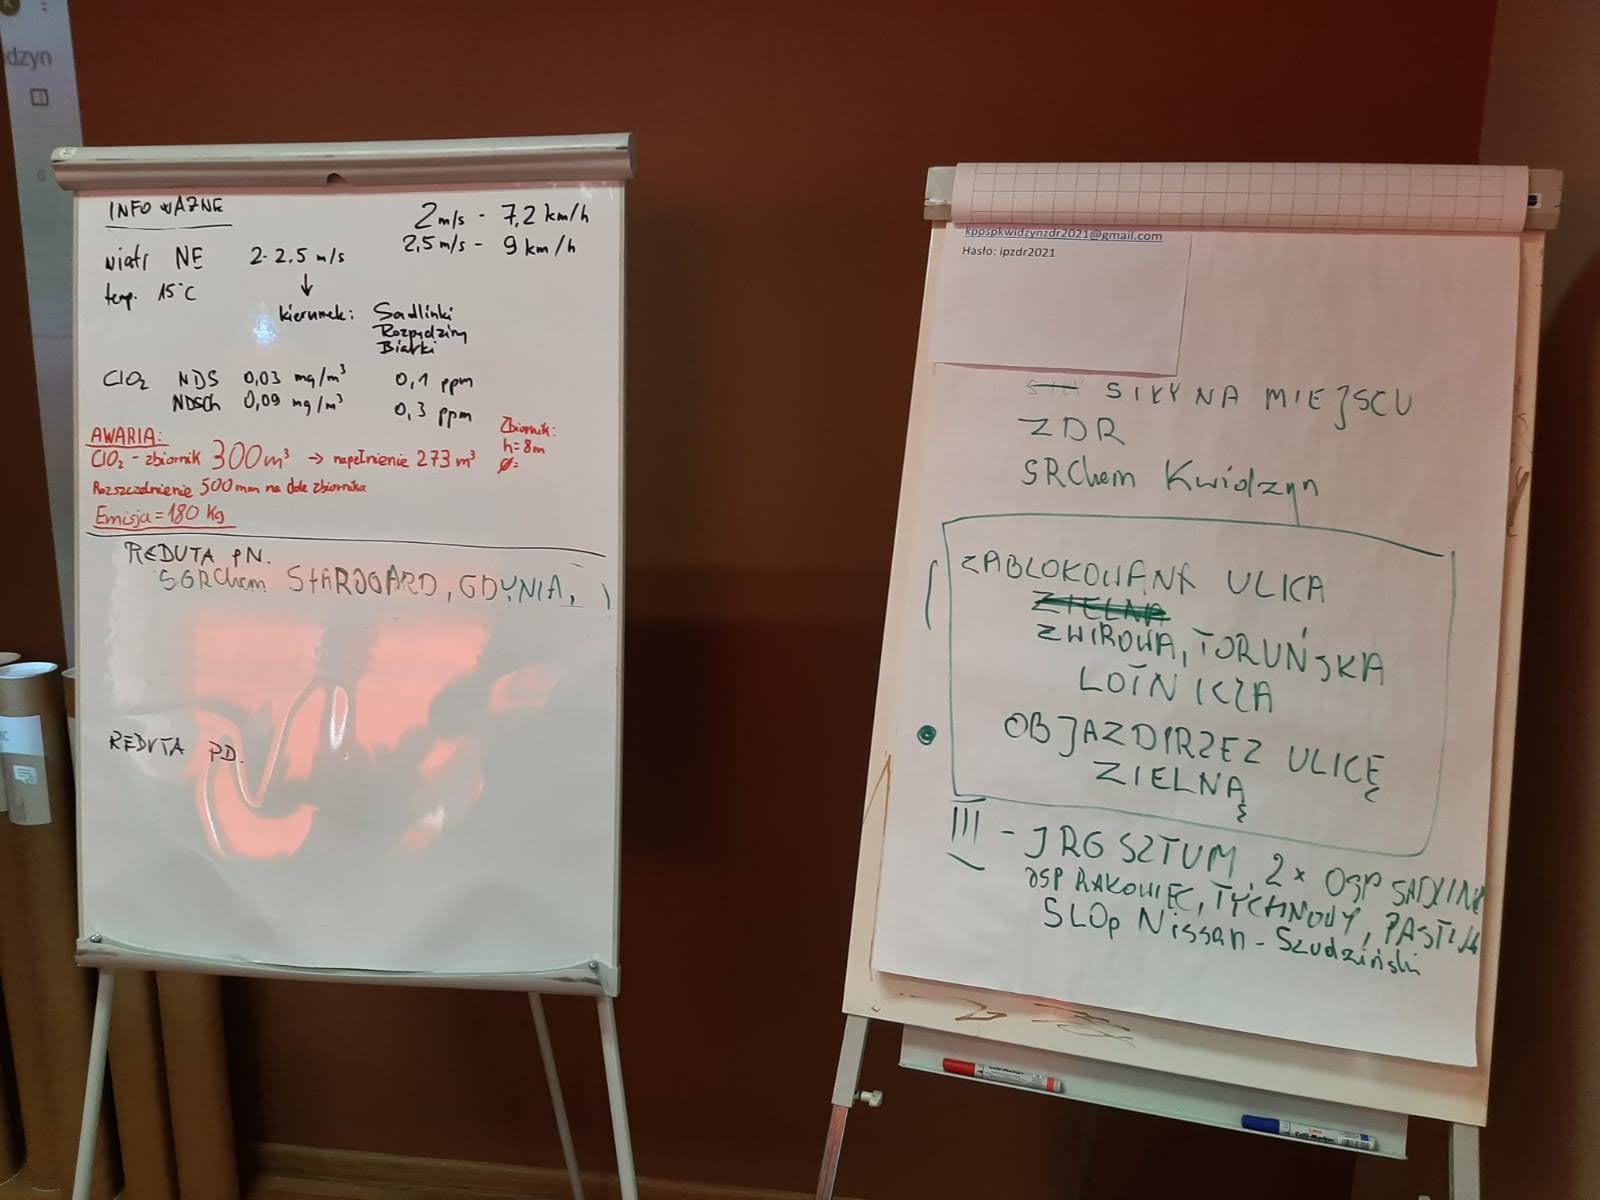 dzyn
INFO WAŻNE
2 m/s - 7,2 km/h
2,5 m/s - 9 km/h
wiatr NE 2-2,5 m/s
temp. 15°C
↓
kierunek: Sadlinki
Rozpędziny
Białki
ClO2 NDS 0,03 mg/m³ 0,1 ppm
NDSCh 0,09 mg/m³ 0,3 ppm
AWARIA:
ClO2 - zbiornik 300 m³ → napełnienie 273 m³
Zbiornik:
h=8m
Ø=
Rozszczelnienie 500 mm na dole zbiornika
Emisja = 180 Kg
REDUTA PN.
SGRChem STAROGARD, GDYNIA,
REDUTA PD.
kppspkwidzynzdr2021@gmail.com
Hasło: ipzdr2021
SIŁY NA MIEJSCU
ZDR
SRChem Kwidzyn
ZABLOKOWANA ULICA
ZIELNA
ZWIROWA, TORUŃSKA
LOTNICZA
OBJAZD PRZEZ ULICĘ
ZIELNĄ
III - JRG SZTUM, 2 x OSP SADLINK
OSP RAKOWIEC, TYCHNOWY,
SLOp Nissan - Szudziński